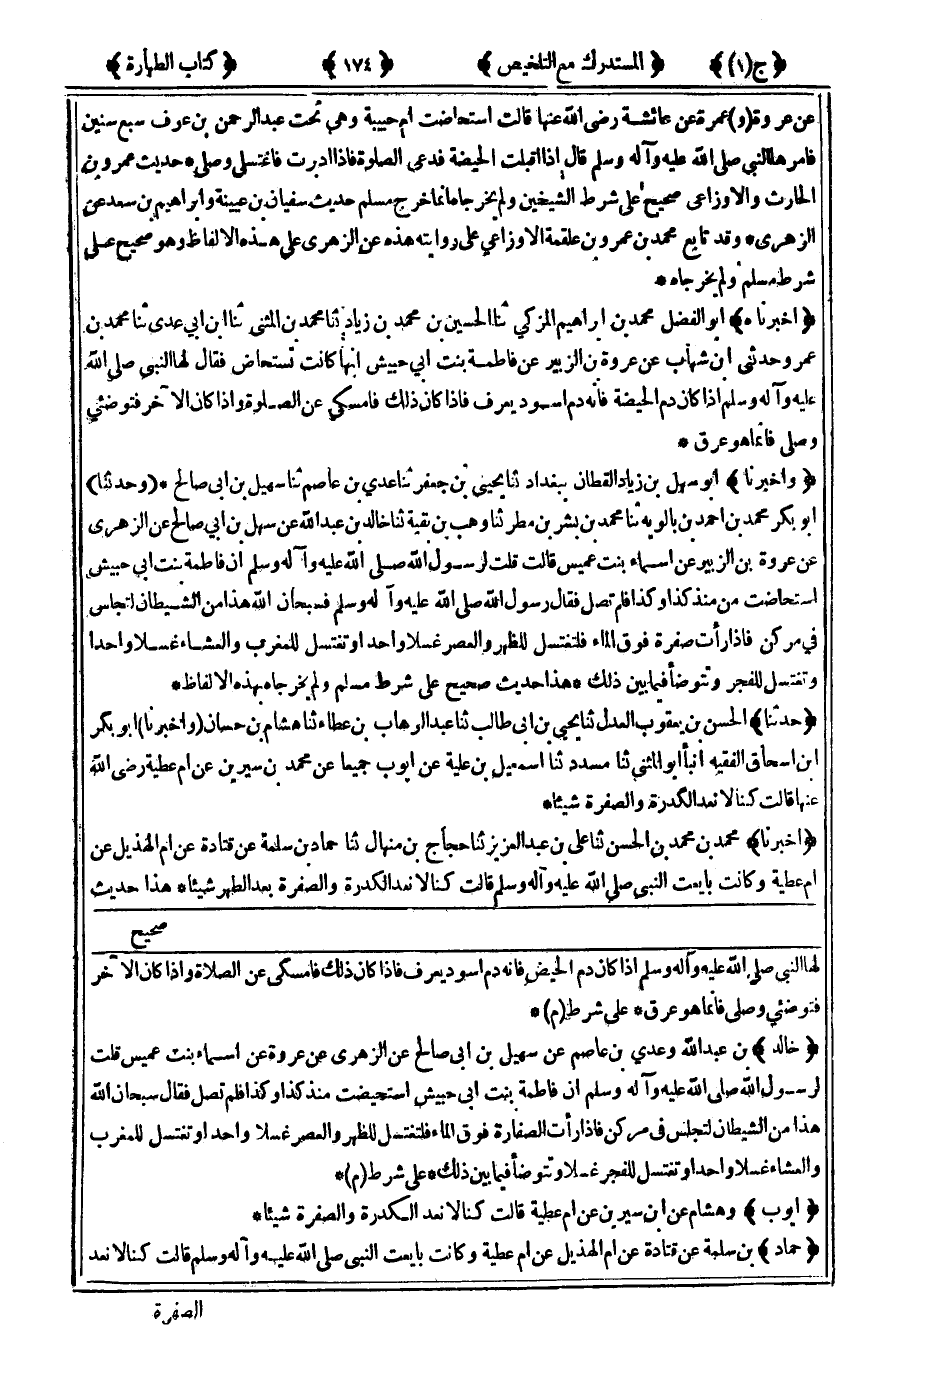 ﴿ ج(١) ﴾ ﴿ المستدرك مع التلخيص ﴾ ﴿ ١٧٤ ﴾ ﴿ كتاب الطهارة ﴾
عن عروة (و) عمرة عن عائشة رضى الله عنها قالت استحاضت ام حبيبة وهى تحت عبدالرحمن بن عوف سبع سنين
فامرها النبي صلى الله عليه وآله وسلم قال اذا اقبلت الحيضة فدعى الصلوة فاذا ادبرت فاغتسلى وصلى * حديث عمرو بن
الحارث والاوزاعى صحيح على شرط الشيخين ولم يخرجاه انما خرج مسلم حديث سفيان بن عيينة وابراهيم بن سعد عن
الزهرى * وقد تابع محمد بن عمرو بن علقمة الاوزاعي على روايته هذه عن الزهرى على هذه الالفاظ وهو صحيح على
شرط مسلم ولم يخرجاه *
﴿ اخبرنا * ﴾ ابو الفضل محمد بن ابراهيم المزكي ثنا الحسين بن محمد بن زياد ثنا محمد بن المثنى ثنا ابن ابى عدى ثنا محمد بن
عمر وحدثنى ابن شهاب عن عروة بن الزبير عن فاطمة بنت ابي حبيش انها كانت تستحاض فقال لها النبي صلى الله
عليه وآله وسلم اذا كان دم الحيضة فانه دم اسود يعرف فاذا كان ذلك فامسكي عن الصلوة واذا كان الآخر فتوضئي
وصلى فانما هو عرق *
﴿ واخبرنا ﴾ ابو سهل بن زياد القطان ببغداد ثنا يحيى بن جعفر ثنا عدي بن عاصم ثنا سهيل بن ابى صالح * (وحدثنا)
ابو بكر محمد بن احمد بن بالويه ثنا محمد بن بشر بن مطر ثنا وهب بن بقية ثنا خالد بن عبدالله عن سهل بن ابي صالح عن الزهرى
عن عروة بن الزبير عن اسماء بنت عميس قالت قلت لرسول الله صلى الله عليه وآله وسلم ان فاطمة بنت ابي حبيش
استحاضت من منذ كذا وكذا فلم تصل فقال رسول الله صلى الله عليه وآله وسلم فسبحان الله هذا من الشيطان لتجلس
في مركن فاذا رأت صفرة فوق الماء فلتغتسل للظهر والعصر غسلا واحدا وتغتسل للمغرب والعشاء غسلا واحدا
وتغتسل للفجر وتتوضأ فيما بين ذلك * هذا حديث صحيح على شرط مسلم ولم يخرجاه بهذه الالفاظ *
﴿ حدثنا ﴾ الحسن بن يعقوب العدل ثنا يحيى بن ابى طالب ثنا عبدالوهاب بن عطاء ثنا هشام بن حسان (واخبرنا) ابو بكر
ابن اسحاق الفقيه انبأ ابو المثنى ثنا مسدد ثنا اسمعيل بن علية عن ايوب جميعا عن محمد بن سيرين عن ام عطية رضى الله
عنها قالت كنا لا نعد الكدرة والصفرة شيئا *
﴿ اخبرنا ﴾ محمد بن محمد بن الحسن ثنا على بن عبدالعزيز ثنا حجاج بن منهال ثنا حماد بن سلمة عن قتادة عن ام الهذيل عن
ام عطية وكانت بايعت النبي صلى الله عليه وآله وسلم قالت كنا لا نعد الكدرة والصفرة بعد الطهر شيئا * هذا حديث
صحيح
لها النبي صلى الله عليه وآله وسلم اذا كان دم الحيض فانه دم اسود يعرف فاذا كان ذلك فامسكى عن الصلاة واذا كان الآخر
فتوضئي وصلى فانما هو عرق * على شرط (م) *
﴿ خالد ﴾ بن عبدالله وعدي بن عاصم عن سهيل بن ابى صالح عن الزهرى عن عروة عن اسماء بنت عميس قلت
لرسول الله صلى الله عليه وآله وسلم ان فاطمة بنت ابي حبيش استحيضت منذ كذا وكذا فلم تصل فقال سبحان الله
هذا من الشيطان لتجلس فى مركن فاذا رأت الصفارة فوق الماء فلتغتسل للظهر والعصر غسلا واحدا وتغتسل للمغرب
والعشاء غسلا واحدا وتغتسل للفجر غسلا وتتوضأ فيما بين ذلك * على شرط (م) *
﴿ ايوب ﴾ وهشام عن ابن سيرين عن ام عطية قالت كنا لا نعد الكدرة والصفرة شيئا *
﴿ حماد ﴾ بن سلمة عن قتادة عن ام الهذيل عن ام عطية وكانت بايعت النبى صلى الله عليه وآله وسلم قالت كنا لا نعد
الصفرة